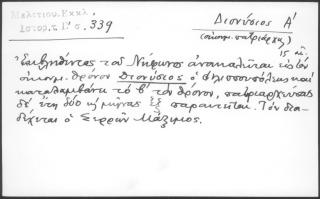 Μελετίου. Εκκλ.
Ιστορ. τ. Γ' σ. 339
Διονύσιος Α'
(οικουμ. πατριάρχης)
15 αι.
Εκβληθέντος του Νήφωνος ανακαλείται εις τον
οικουμ. θρόνον Διονύσιος ο Φιλιππουπόλεως και
καταλαμβάνει το β' τον θρόνον, πατριαρχεύσας
δε έτη δύο και μήνας έξ παραιτείται. Τον δια-
δέχεται ο Σερρών Μάξιμος.